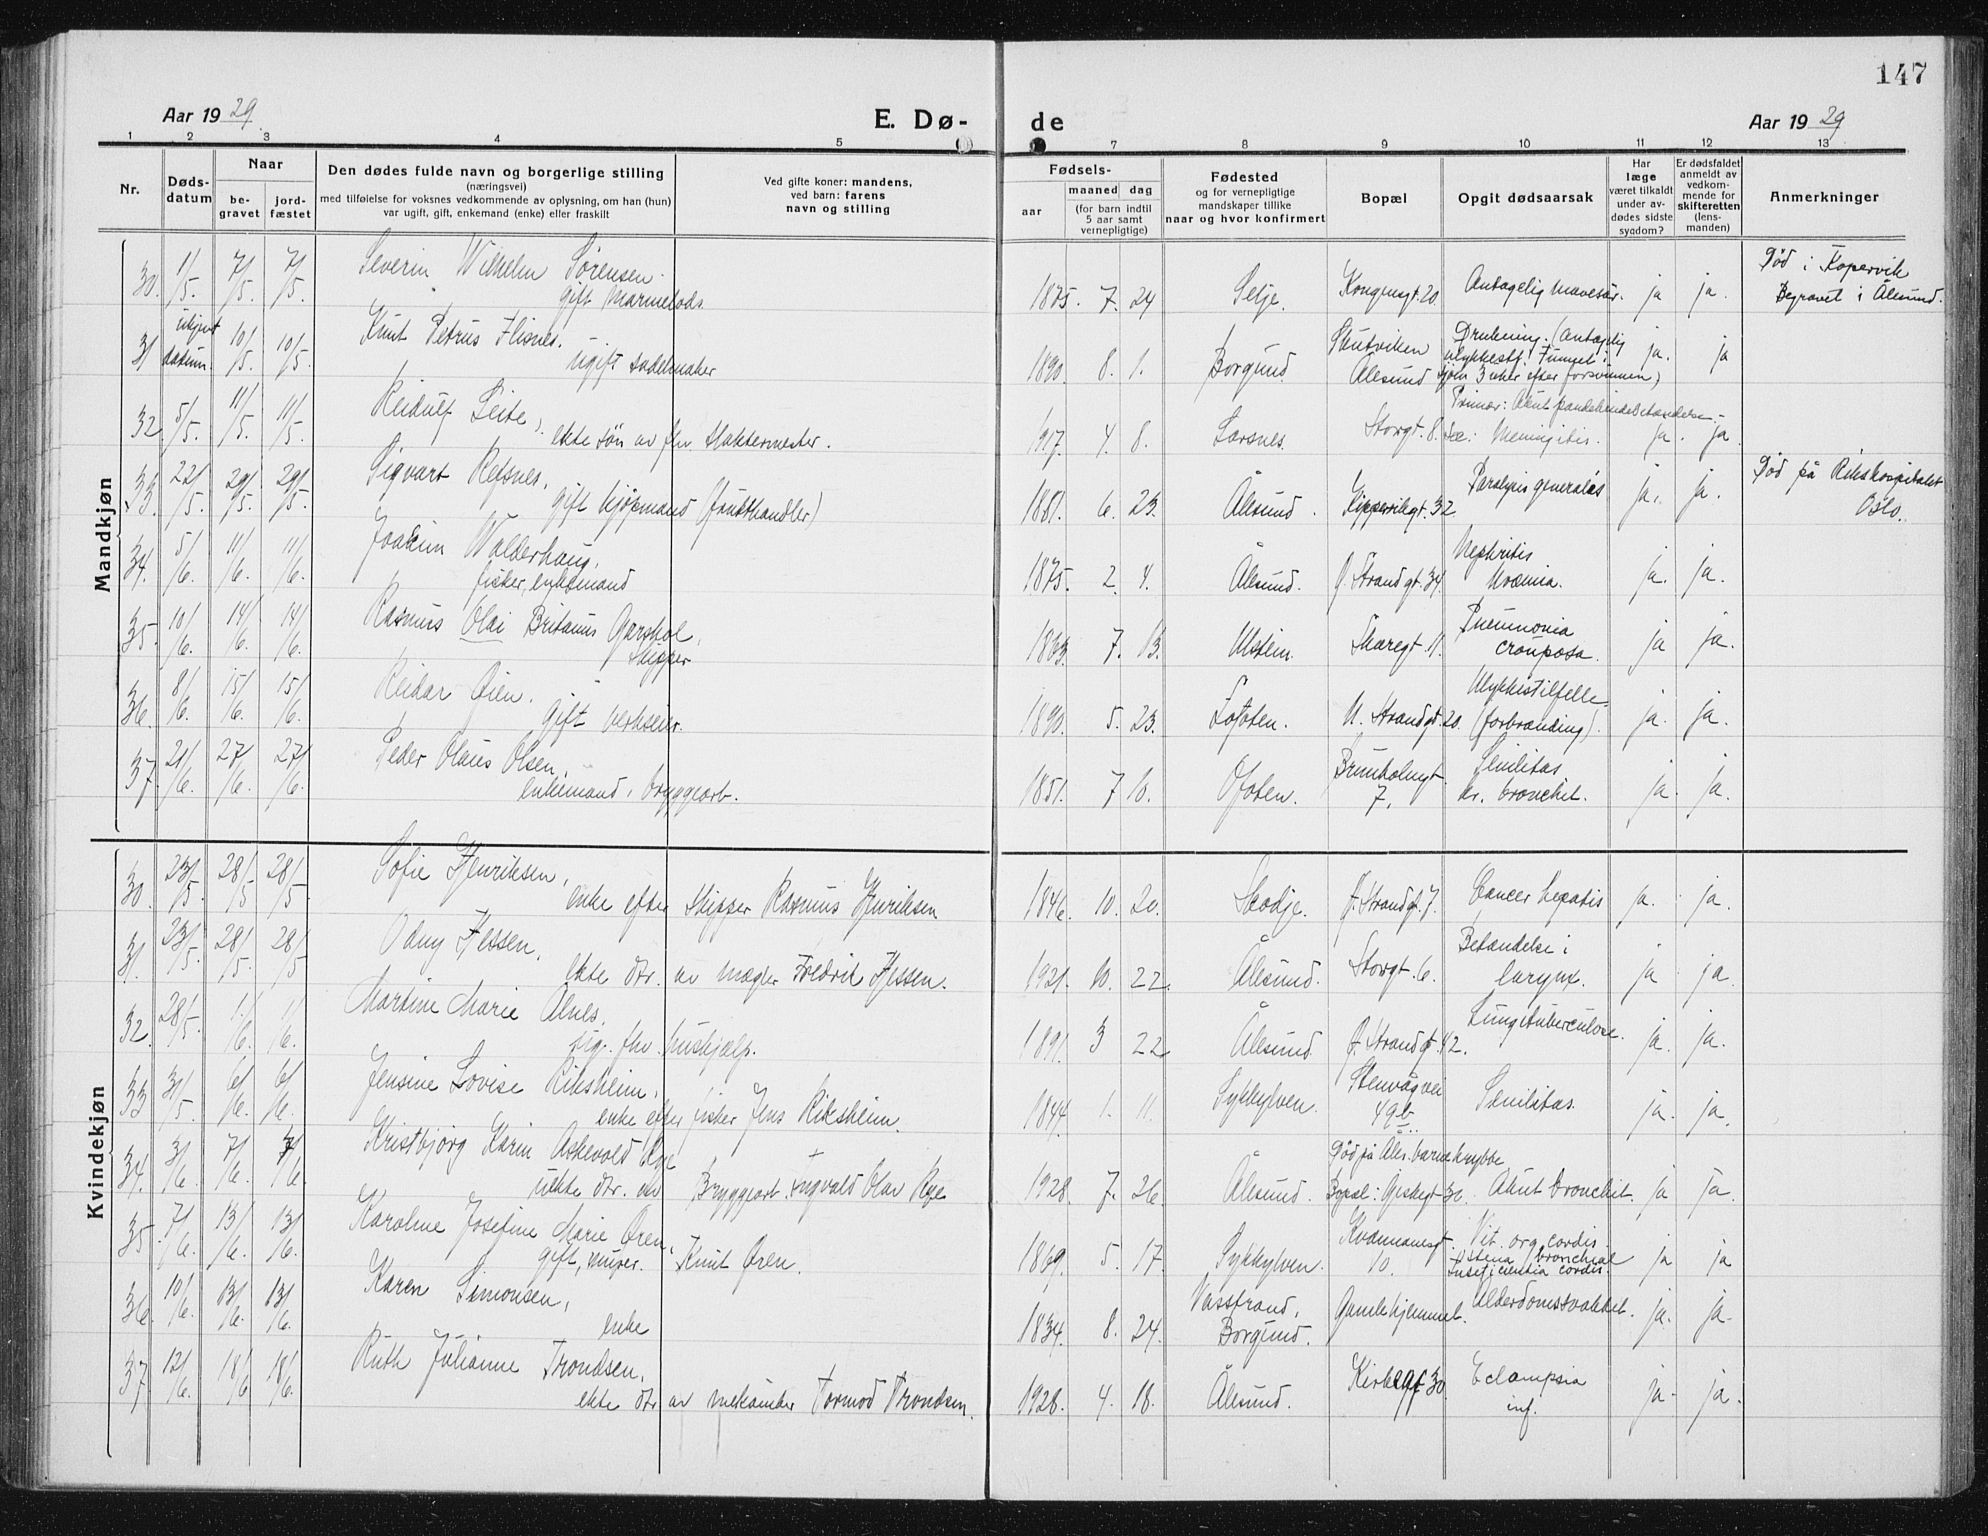 147
Aar 1929.
E. Dø-
de
Aar 1929
1 2 3 4 5 7 8 9 10 11 12 13
Nr.
Døds-
datum
Naar
be-
gravet
jord-
fæstet
Den dødes fulde navn og borgerlige stilling
(næringsvei)
med tilføielse for voksnes vedkommende av oplysning, om han (hun)
var ugift, gift, enkemand (enke) eller fraskilt
Ved gifte koner: mandens,
ved barn: farens
navn og stilling
Fødsels-
aar
maaned dag
(for barn indtil
5 aar samt
vernepligtige)
Fødested
og for vernepligtige
mandskaper tillike
naar og hvor konfirmert
Bopæl
Opgit dødsaarsak
Har
læge
været tilkaldt
under av-
dødes sidste
sygdom?
Er dødsfaldet
anmeldt av
vedkom-
mende for
skifteretten
(lens-
manden)
Anmerkninger
Mandkjøn
30. 1/5. 7/5. 7/5. Severin Wilhelm Sørensen.
gift marmelods.
1875. 7. 24 Selje. Kongensgt. 20. Antagelig mavesår. ja ja.
Død i Kopervik
Begravet i Ålesund.
31 ukjent
datum. 10/5. 10/5. Knut Petrus Flisnes.
ugift sadelmaker
1890. 8. 1. Borgund. Skutviken
Ålesund
Drukning. (antagelig
ulykkestf. Funnet i
sjøen 3 uker efter forsvinnen)
ja. ja
32 5/5. 11/5. 11/5. Reidulf Leite,
ekte søn av fhv. slaktermester.
1917. 4. 8. Larsnes. Storgt. 8.
Primær: Akut pandehulebetændelse -
Sec: Meningitis. ja. ja.
33. 22/5. 29/5. 29/5. Sigvart Refsnes,
gift kjøpmand (frukthandler)
1881. 6. 23. Ålesund. Kipperviksgt. 32 Paralysis generalis ja. ja.
Død på Rikshospitalet
Oslo.
34. 5/6. 11/6. 11/6. Joakim Walderhaug,
fisker, enkemand
1875. 2. 4. Ålesund. Ø. Strandgt. 34. Nephritis
Uræmia. ja. ja.
35. 10/6. 14/6. 14/6. Rasmus Olai Britanus Garshol,
skipper
1863. 7. 13. Ulstein. Skaregt. 11. Pneumonia
crouposa. ja ja.
36. 8/6. 15/6. 15/6. Reidar Øien.
gift verkseier.
1890. 5. 23. Lofoten. N. Strandgt. 20. Ulykkestilfelle.
(forbrænding). ja. ja.
37. 21/6. 27/6. 27/6. Peder Olaus Olsen,
enkemand, bryggearb.
1851. 7 10. Ofoten. Brunholmgt.
7. Senilitas
kr. bronchit. ja. ja.
Kvindekjøn
30 23/5. 28/5 28/5. Sofie Henriksen,
enke efter skipper Rasmus Henriksen
1846. 10. 20. Skodje. Ø. Strandgt. 7. Cancer hepatis ja. ja.
31. 23/5. 28/5. 28/5 Odny Hessen,
ekte dtr. av mægler Fredrik Hessen.
1921. 10. 22. Ålesund. Storgt. 6. Betændelse i
larynx. ja ja.
32. 28/5. 1/6. 1/6. Martine Marie Alnes.
ug. fhv. hushjælp.
1891. 3 22. Ålesund. Ø. Strandgt. 42. Lungetuberculose. ja. ja.
33 31/5. 6/6. 6/6. Jensine Lovise Riksheim,
enke efter fisker Jens Riksheim.
1844. 1. 11. Sykkylven. Stenvågvei
49b. Senilitas. ja. ja.
34. 3/6. 7/6. 7/6. Kristbjørg Karin Askevold Rye
uekte dtr. av Bryggearb. Ingvald Olav Rye
1928. 7. 26. Ålesund. Død på Åles. barnekrybbe
Bopæl: Giskegt. 30. Akut bronchit. ja ja.
35. 7/6. 13/6. 13/6. Karoline Josefine Marie Øren,
gift, murer. Knut Øren.
1869. 5. 17. Sykkylven. Kvannanesgt.
10. Vit. org. cordis.
Astma bronchial
Insuficientia cordis. ja ja
36. 10/6. 13/6. 13/6. Karen Simonsen,
enke
1834. 8. 24. Vasstrand,
Borgund. Gamlehjemmet. Alderdomssvakhet. ja. ja.
37 12/6. 18/6 18/6. Ruth Julianne Trondsen,
ekte dtr. av mekaniker Tormod Trondsen.
1928. 4. 18. Ålesund. Kirkegt 30. Eclampsia
inf. ja. ja.